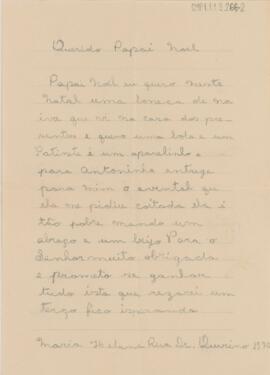 Querido Papai Noel
Papai Noel eu quero neste
Natal uma boneca de no
iva que vi na casa dos pre
sentes e quero uma bola e um
Patinte é um aparelinho e
para Antoninho entrege
para mim o avental que
ela me pidiu coitada ela é
tão pobre mando um
abraço e um bijo Para o
Senhor muito obrigada
e prometo se ganhar
tudo ista que rezarei um
terço fico esperando
Maria Helena Rua Dr. Quirino